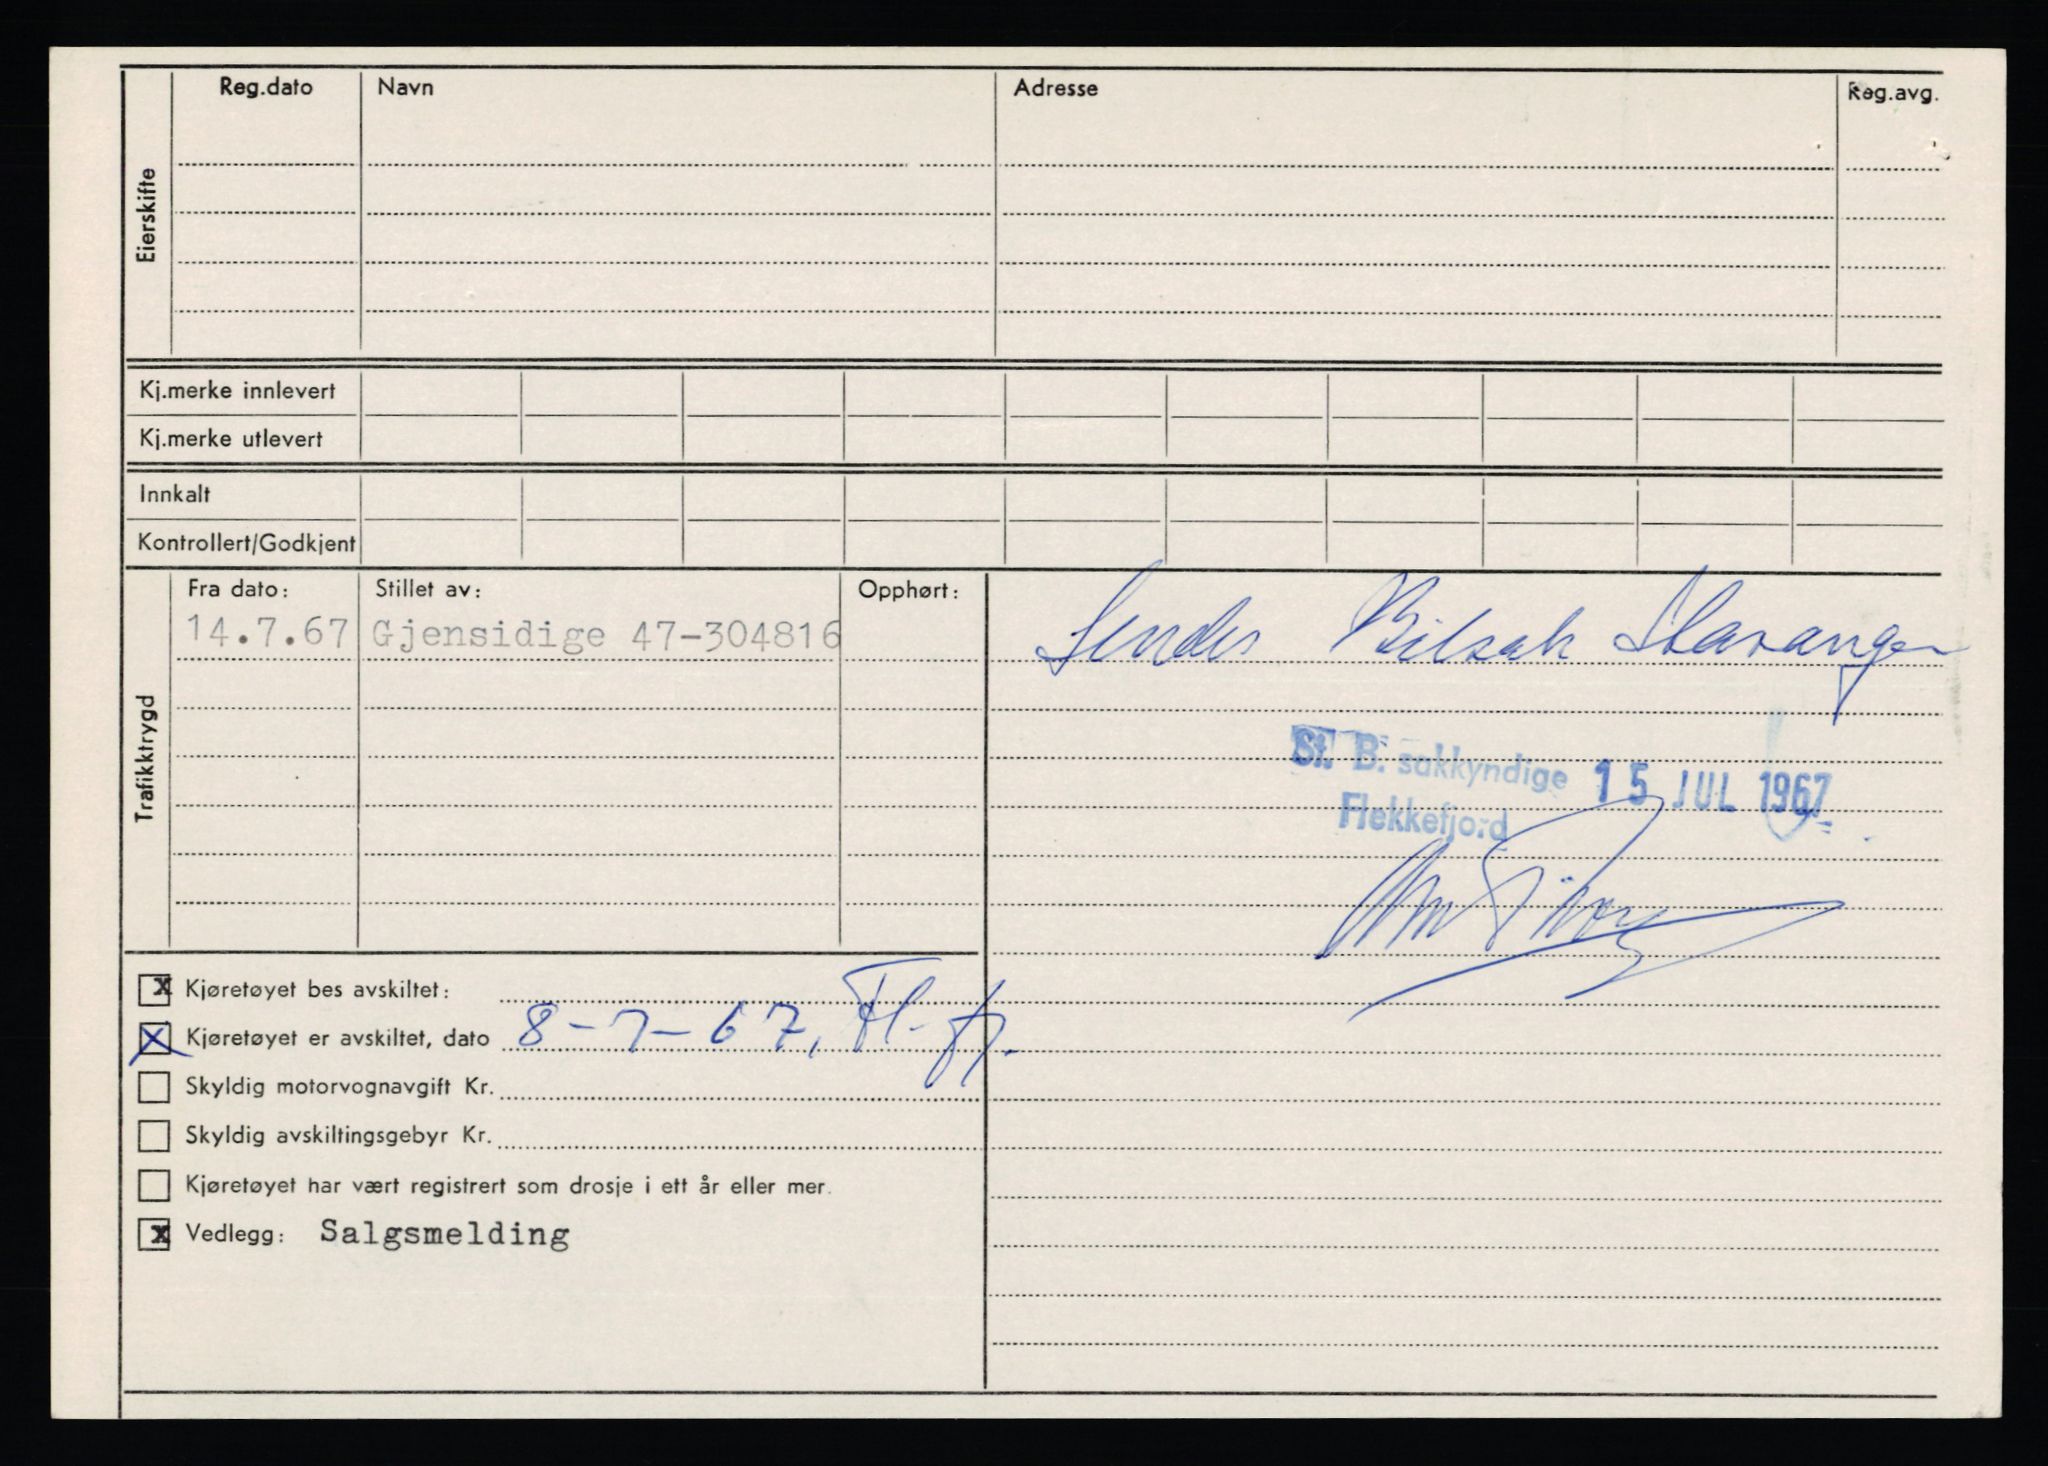 Reg.dato Navn Adresse Reg.avg.
Eierskifte
Kj.merke innlevert
Kj.merke utlevert
Innkalt
Kontrollert/Godkjent
Trafikktrygd
Fra dato: Stillet av: Opphørt:
14.7.67 Gjensidige 47-304816
Sendes Bilsak Stavanger
St. B. sakkyndige 15 JUL 1967
Flekkefjord
x Kjøretøyet bes avskiltet:
x Kjøretøyet er avskiltet, dato 8-7-67, Fl.fj.
Skyldig motorvognavgift Kr.
Skyldig avskiltingsgebyr Kr.
Kjøretøyet har vært registrert som drosje i ett år eller mer.
x Vedlegg: Salgsmelding